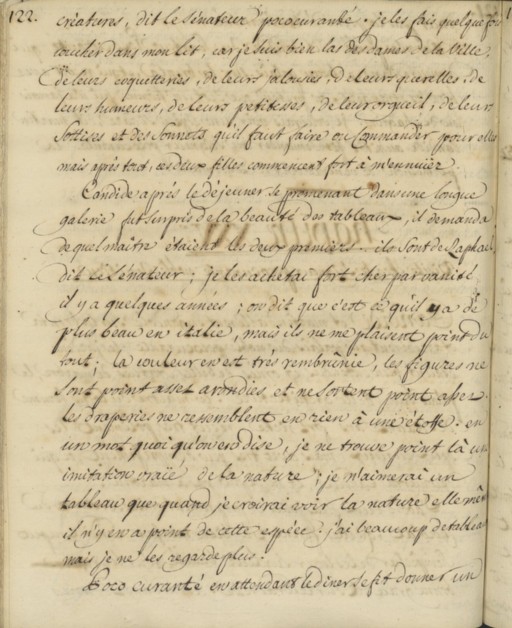 122. créatures, dit le sénateur pococuranté. je les fais quelque fois
coucher dans mon lit, car je suis bien las des dames de la ville,
de leurs coquetteries, de leurs jalousies, de leurs querelles, de
leurs humeurs, de leurs petitesses, de leur orgueil, de leurs
sottises et des sonnets qu'il faut faire ou commander pour elles
mais après tout, ces deux filles commencent fort à m'ennuier.
Candide après le déjeuner se promenant dans une longue
galerie fut surpris de la beauté des tableaux, il demanda
de quel maître étaient les deux premiers. ils sont de Raphael
dit le sénateur; je les achetai fort cher par vanité
il y a quelques années; on dit que c'est ce qu'il y a de
plus beau en italie, mais ils ne me plaisent point du
tout; la couleur en est très rembrûnie, les figures ne
sont point assez arondies, et ne sortent point assez.
les draperies ne resemblent en rien à une étoffe. en
un mot quoi qu'on en dise, je ne trouve point là un
imitation vraïe de la nature; je n'aimerai un
tableau que quand je croirai voir la nature elle mêm
il n'y en a point de cette espèce: j'ai beaucoup de tableau
mais je ne les regarde plus.
Poco curanté en attendant le diner se fit donner un